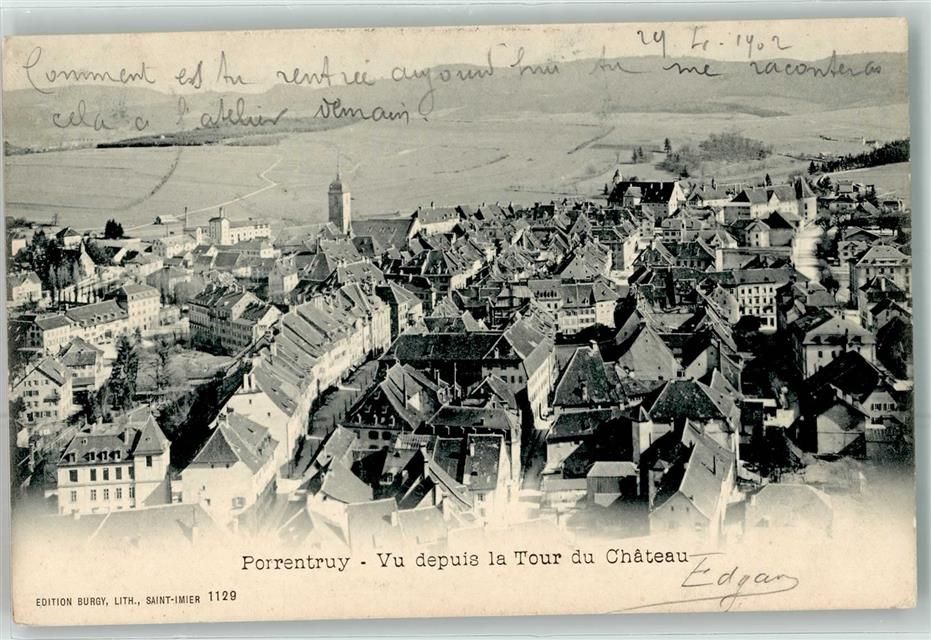 29 - V - 1902
Comment est tu rentrée aujourd'hui tu me raconteras
cela a l'atelier demain.
Porrentruy - Vu depuis la Tour du Château
Edgar
EDITION BURGY, LITH., SAINT-IMIER 1129